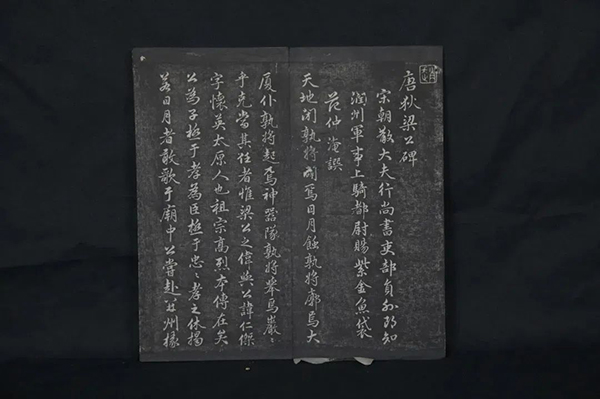 唐狄梁公碑
宋朝散大夫行尚書吏部員外郎知
潤州軍事上騎都尉賜紫金魚袋
范仲淹譔
天地閉孰將闢焉日月蝕孰將廓焉大
厦仆孰將起焉神器隊孰將舉焉巖〻
乎克當其任者惟梁公之偉與公諱仁傑
字懷英太原人也祖宗高烈本傳在矣
公為子極于孝為臣極于忠〻孝之休揚
若日月者敢歌于廟中公嘗赴并州掾